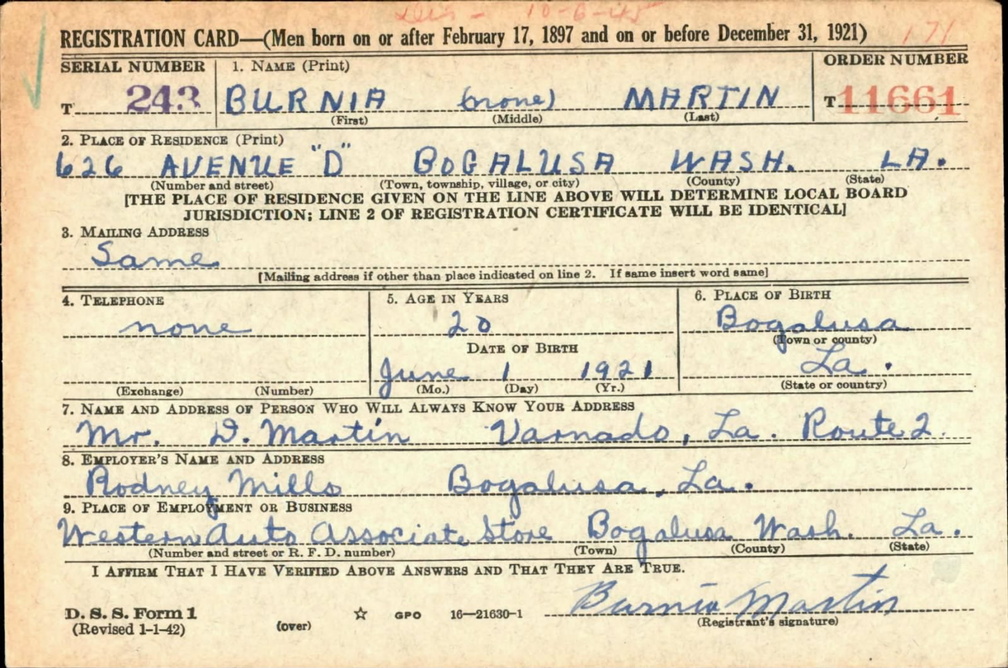 Dis - 10-6-45
REGISTRATION CARD—(Men born on or after February 17, 1897 and on or before December 31, 1921) 171
SERIAL NUMBER 1. NAME (Print) ORDER NUMBER
T 243 BURNIA (none) MARTIN T 11661
(First) (Middle) (Last)
2. PLACE OF RESIDENCE (Print)
626 AVENUE "D" BOGALUSA WASH. LA.
(Number and street) (Town, township, village, or city) (County) (State)
[THE PLACE OF RESIDENCE GIVEN ON THE LINE ABOVE WILL DETERMINE LOCAL BOARD
JURISDICTION; LINE 2 OF REGISTRATION CERTIFICATE WILL BE IDENTICAL]
3. MAILING ADDRESS
Same
[Mailing address if other than place indicated on line 2. If same insert word same]
4. TELEPHONE 5. AGE IN YEARS 6. PLACE OF BIRTH
none 20 Bogalusa
(Town or county)
DATE OF BIRTH
June 1 1921 La.
(Exchange) (Number) (Mo.) (Day) (Yr.) (State or country)
7. NAME AND ADDRESS OF PERSON WHO WILL ALWAYS KNOW YOUR ADDRESS
Mr. D. Martin Varnado, La. Route 2
8. EMPLOYER'S NAME AND ADDRESS
Rodney Mills Bogalusa, La.
9. PLACE OF EMPLOYMENT OR BUSINESS
Western Auto Associate Store Bogalusa Wash. La.
(Number and street or R. F. D. number) (Town) (County) (State)
I AFFIRM THAT I HAVE VERIFIED ABOVE ANSWERS AND THAT THEY ARE TRUE.
D. S. S. Form 1
(Revised 1-1-42) (over) ☆ GPO 16—21630-1 Burnia Martin
(Registrant's signature)